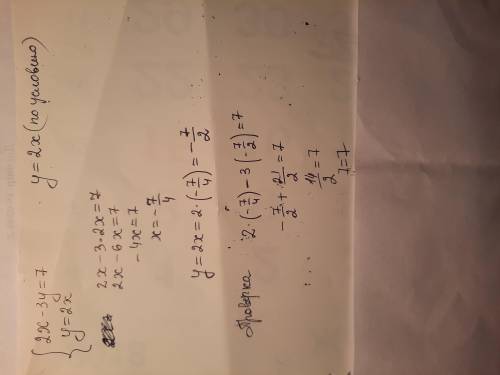 {2x - 3y = 7
y = 2x
y = 2x (по условию)
2x - 3·2x = 7
2x - 6x = 7
-4x = 7
x = -7/4
y = 2x = 2·(-7/4) = -7/2
Проверка
2·(-7/4) - 3(-7/2) = 7
-7/2 + 21/2 = 7
14/2 = 7
7 = 7